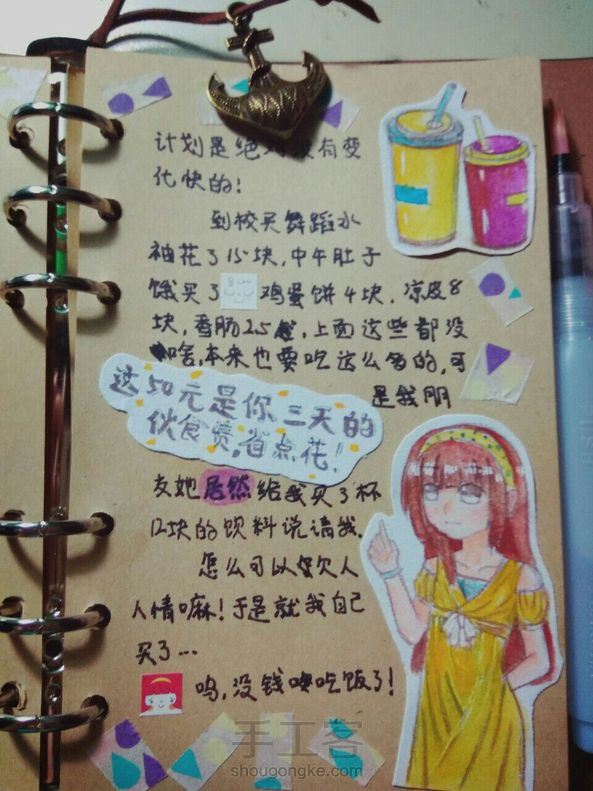 计划是绝对没有变
化快的!
到校买舞蹈水
袖花了15块,中午肚子
饿买了鸡蛋饼4块,凉皮8
块,香肠2.5,上面这些都没
啥,本来也要吃这么多的,可
是我朋
这50元是你三天的
伙食费,省点花!
友她居然给我买了杯
12块的饮料说请我.
怎么可以欠人
人情嘛!于是就我自己
买了...
呜,没钱吃饭了!
手工客
shougongke.com